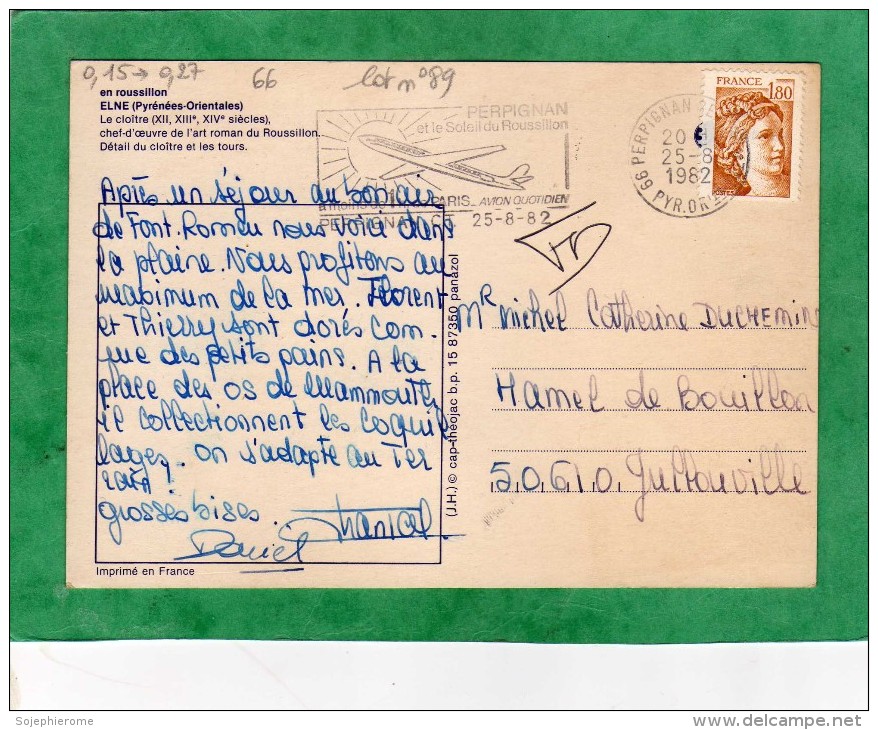 0,15 → 0,27
66
lot n°89
en roussillon
ELNE (Pyrénées-Orientales)
Le cloître (XII, XIIIᵉ, XIVᵉ siècles),
chef-d'œuvre de l'art roman du Roussillon.
Détail du cloître et les tours.
PERPIGNAN
et le Soleil du Roussillon
PARIS AVION QUOTIDIEN
25-8-82
66 PERPIGNAN
20
25-8
1982
PYR.OR
FRANCE
1.80
Après un séjour au bon air
de Font.Romeu nous voici dans
la plaine. Nous profitons au
maximum de la mer. Florent
et Thierry sont dorés com-
me des petits pains. A la
place des os de Mammouths
il collectionnent les coquil
lages! on s'adapte au Ter
rain!
grosses bises.
Chantal
Daniel
Imprimé en France
(J.H.) © cap-théojac b.p. 15 87350 panazol
Mr Michel Catherine DUCHEMIN
Hamel de Bouillon
50.610. Jullouville
Sojephierome
www.delcampe.net